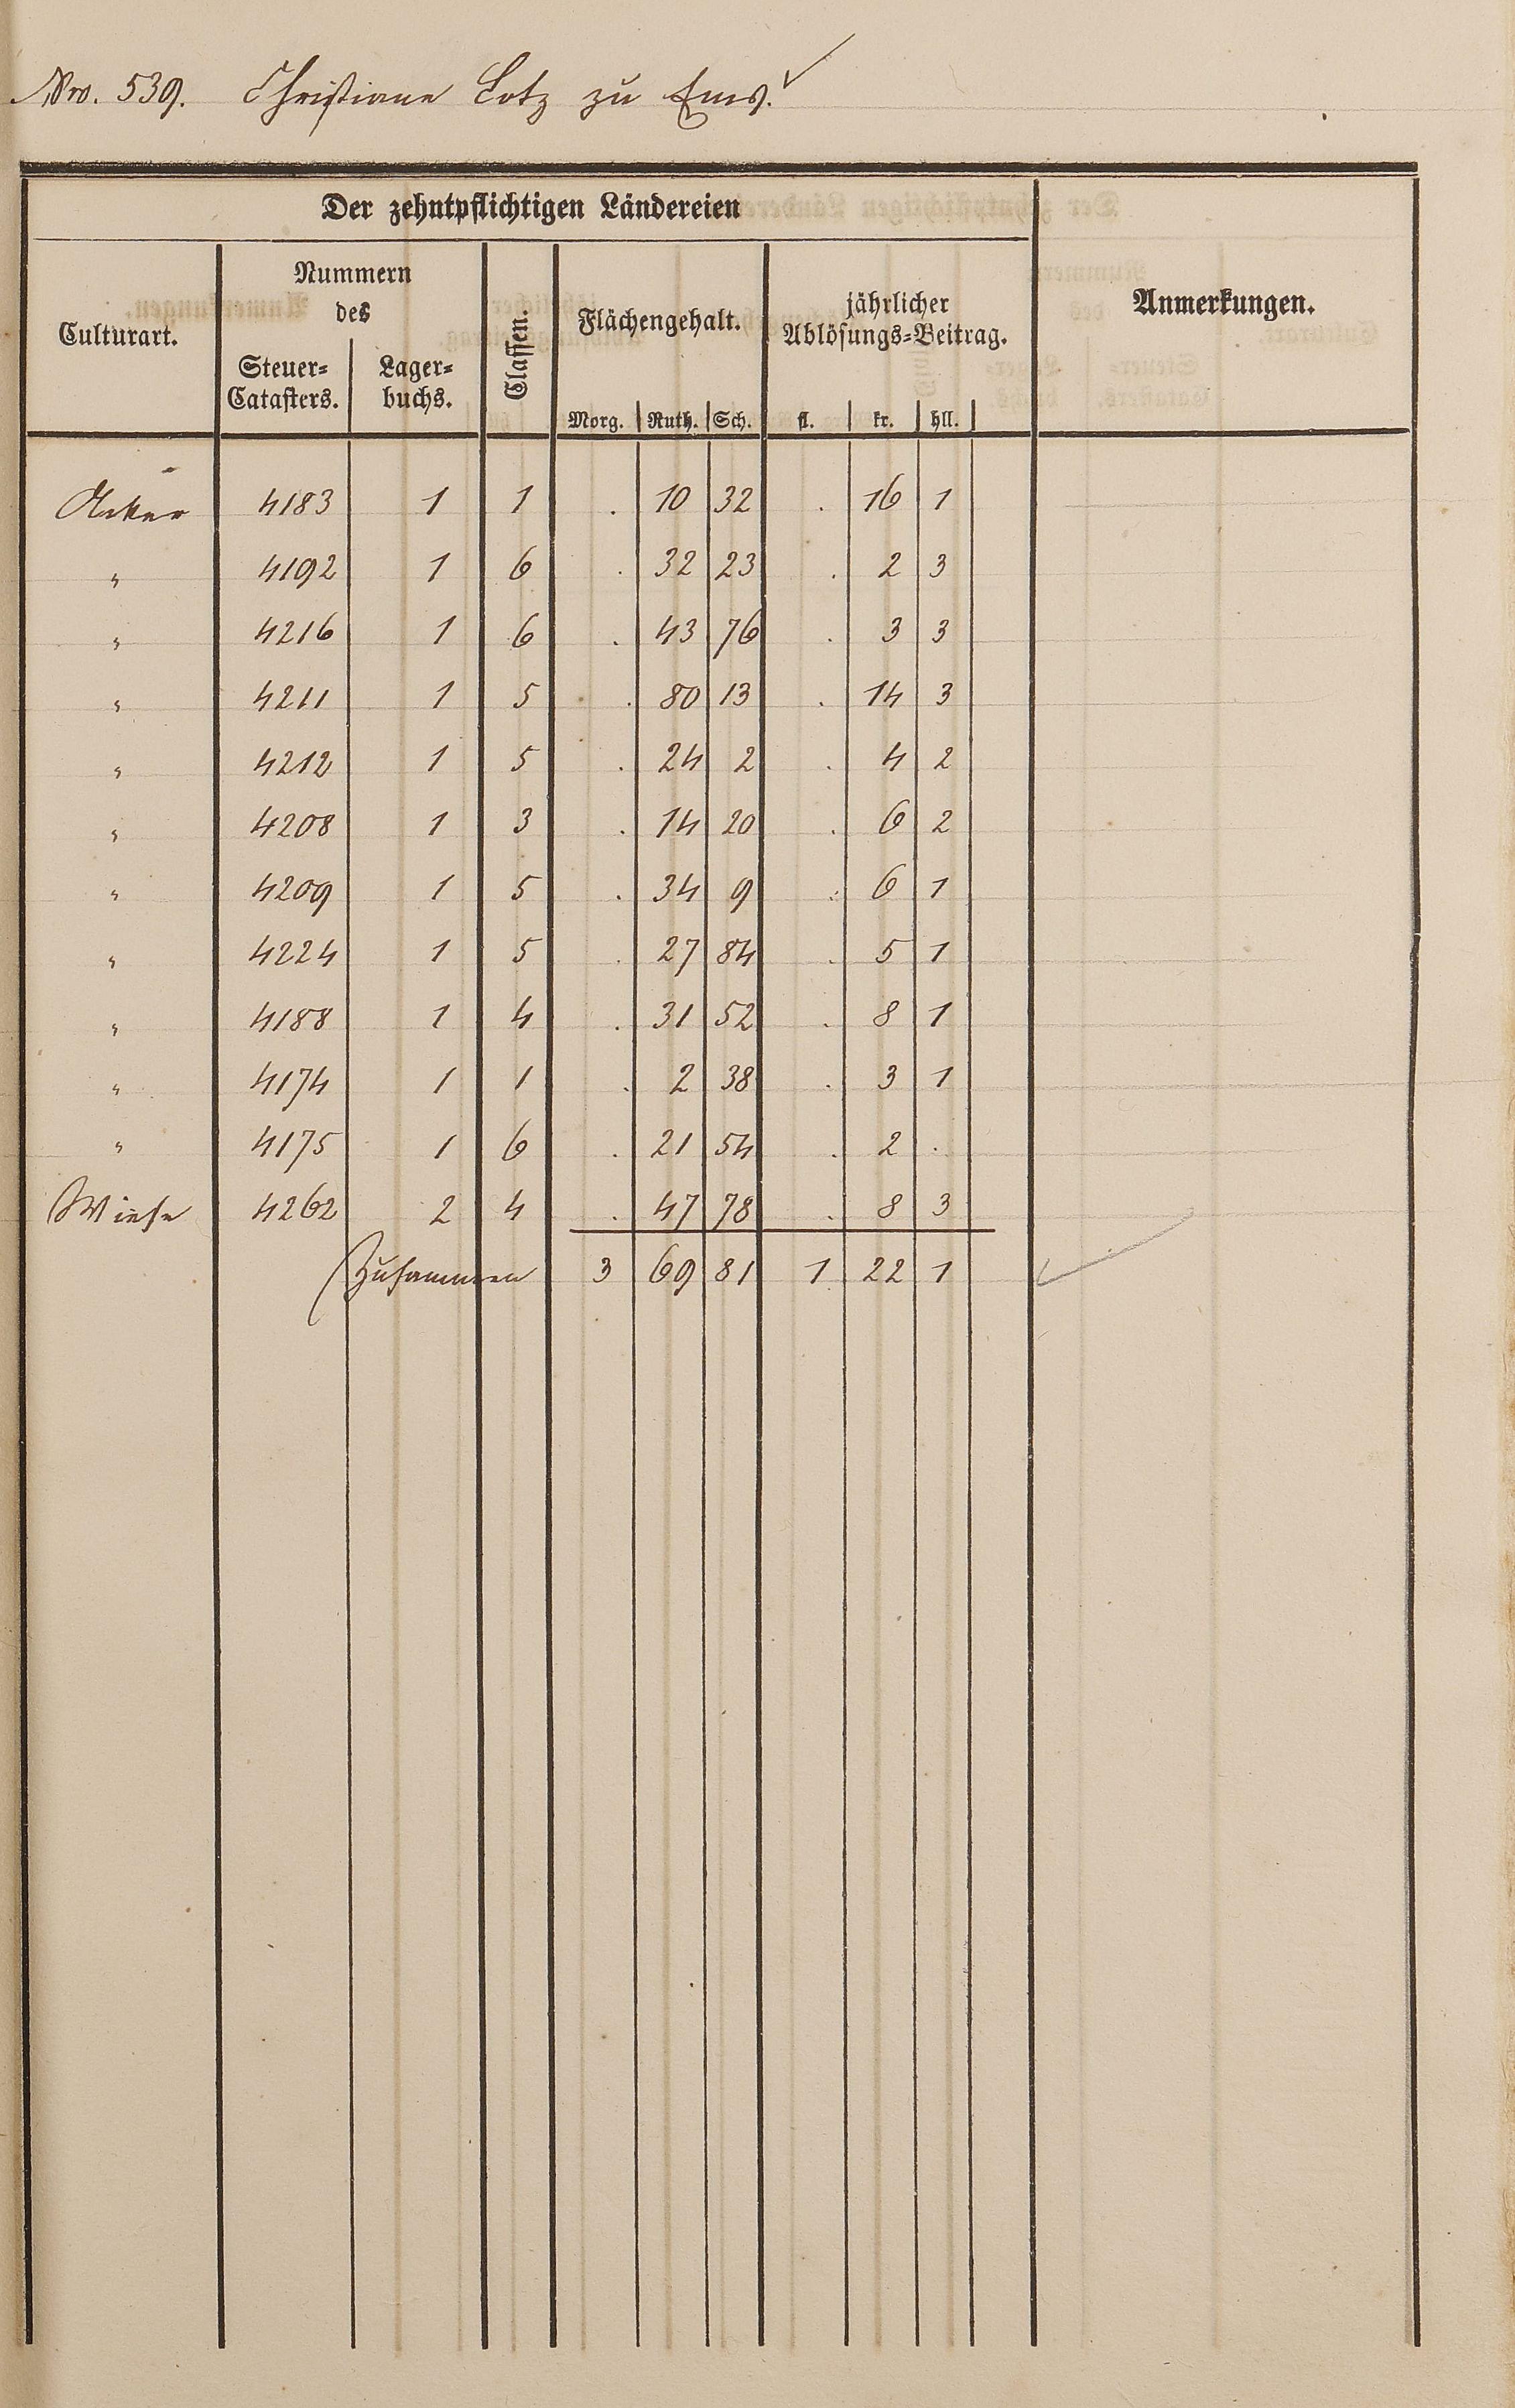 Nro. 539. Christiane Lotz zu Ems.
Der zehntpflichtigen Ländereien
Culturart. Nummern des Steuer=Catasters. Lager=buchs. Classen. Flächengehalt. Morg. Ruth. Sch. jährlicher Ablösungs=Beitrag. fl. kr. hll. Anmerkungen.
Acker 4183 1 1 . 10 32 . 16 1
" 4192 1 6 . 32 23 . 2 3
" 4216 1 6 . 43 76 . 3 3
" 4211 1 5 . 80 13 . 14 3
" 4212 1 5 . 24 2 . 4 2
" 4208 1 3 . 14 20 . 6 2
" 4209 1 5 . 34 9 . 6 1
" 4224 1 5 . 27 84 . 5 1
" 4188 1 4 . 31 52 . 8 1
" 4174 1 1 . 2 38 . 3 1
" 4175 1 6 . 21 54 . 2 .
Wiese 4262 2 4 . 47 78 . 8 3
Zusammen 3 69 81 1 22 1